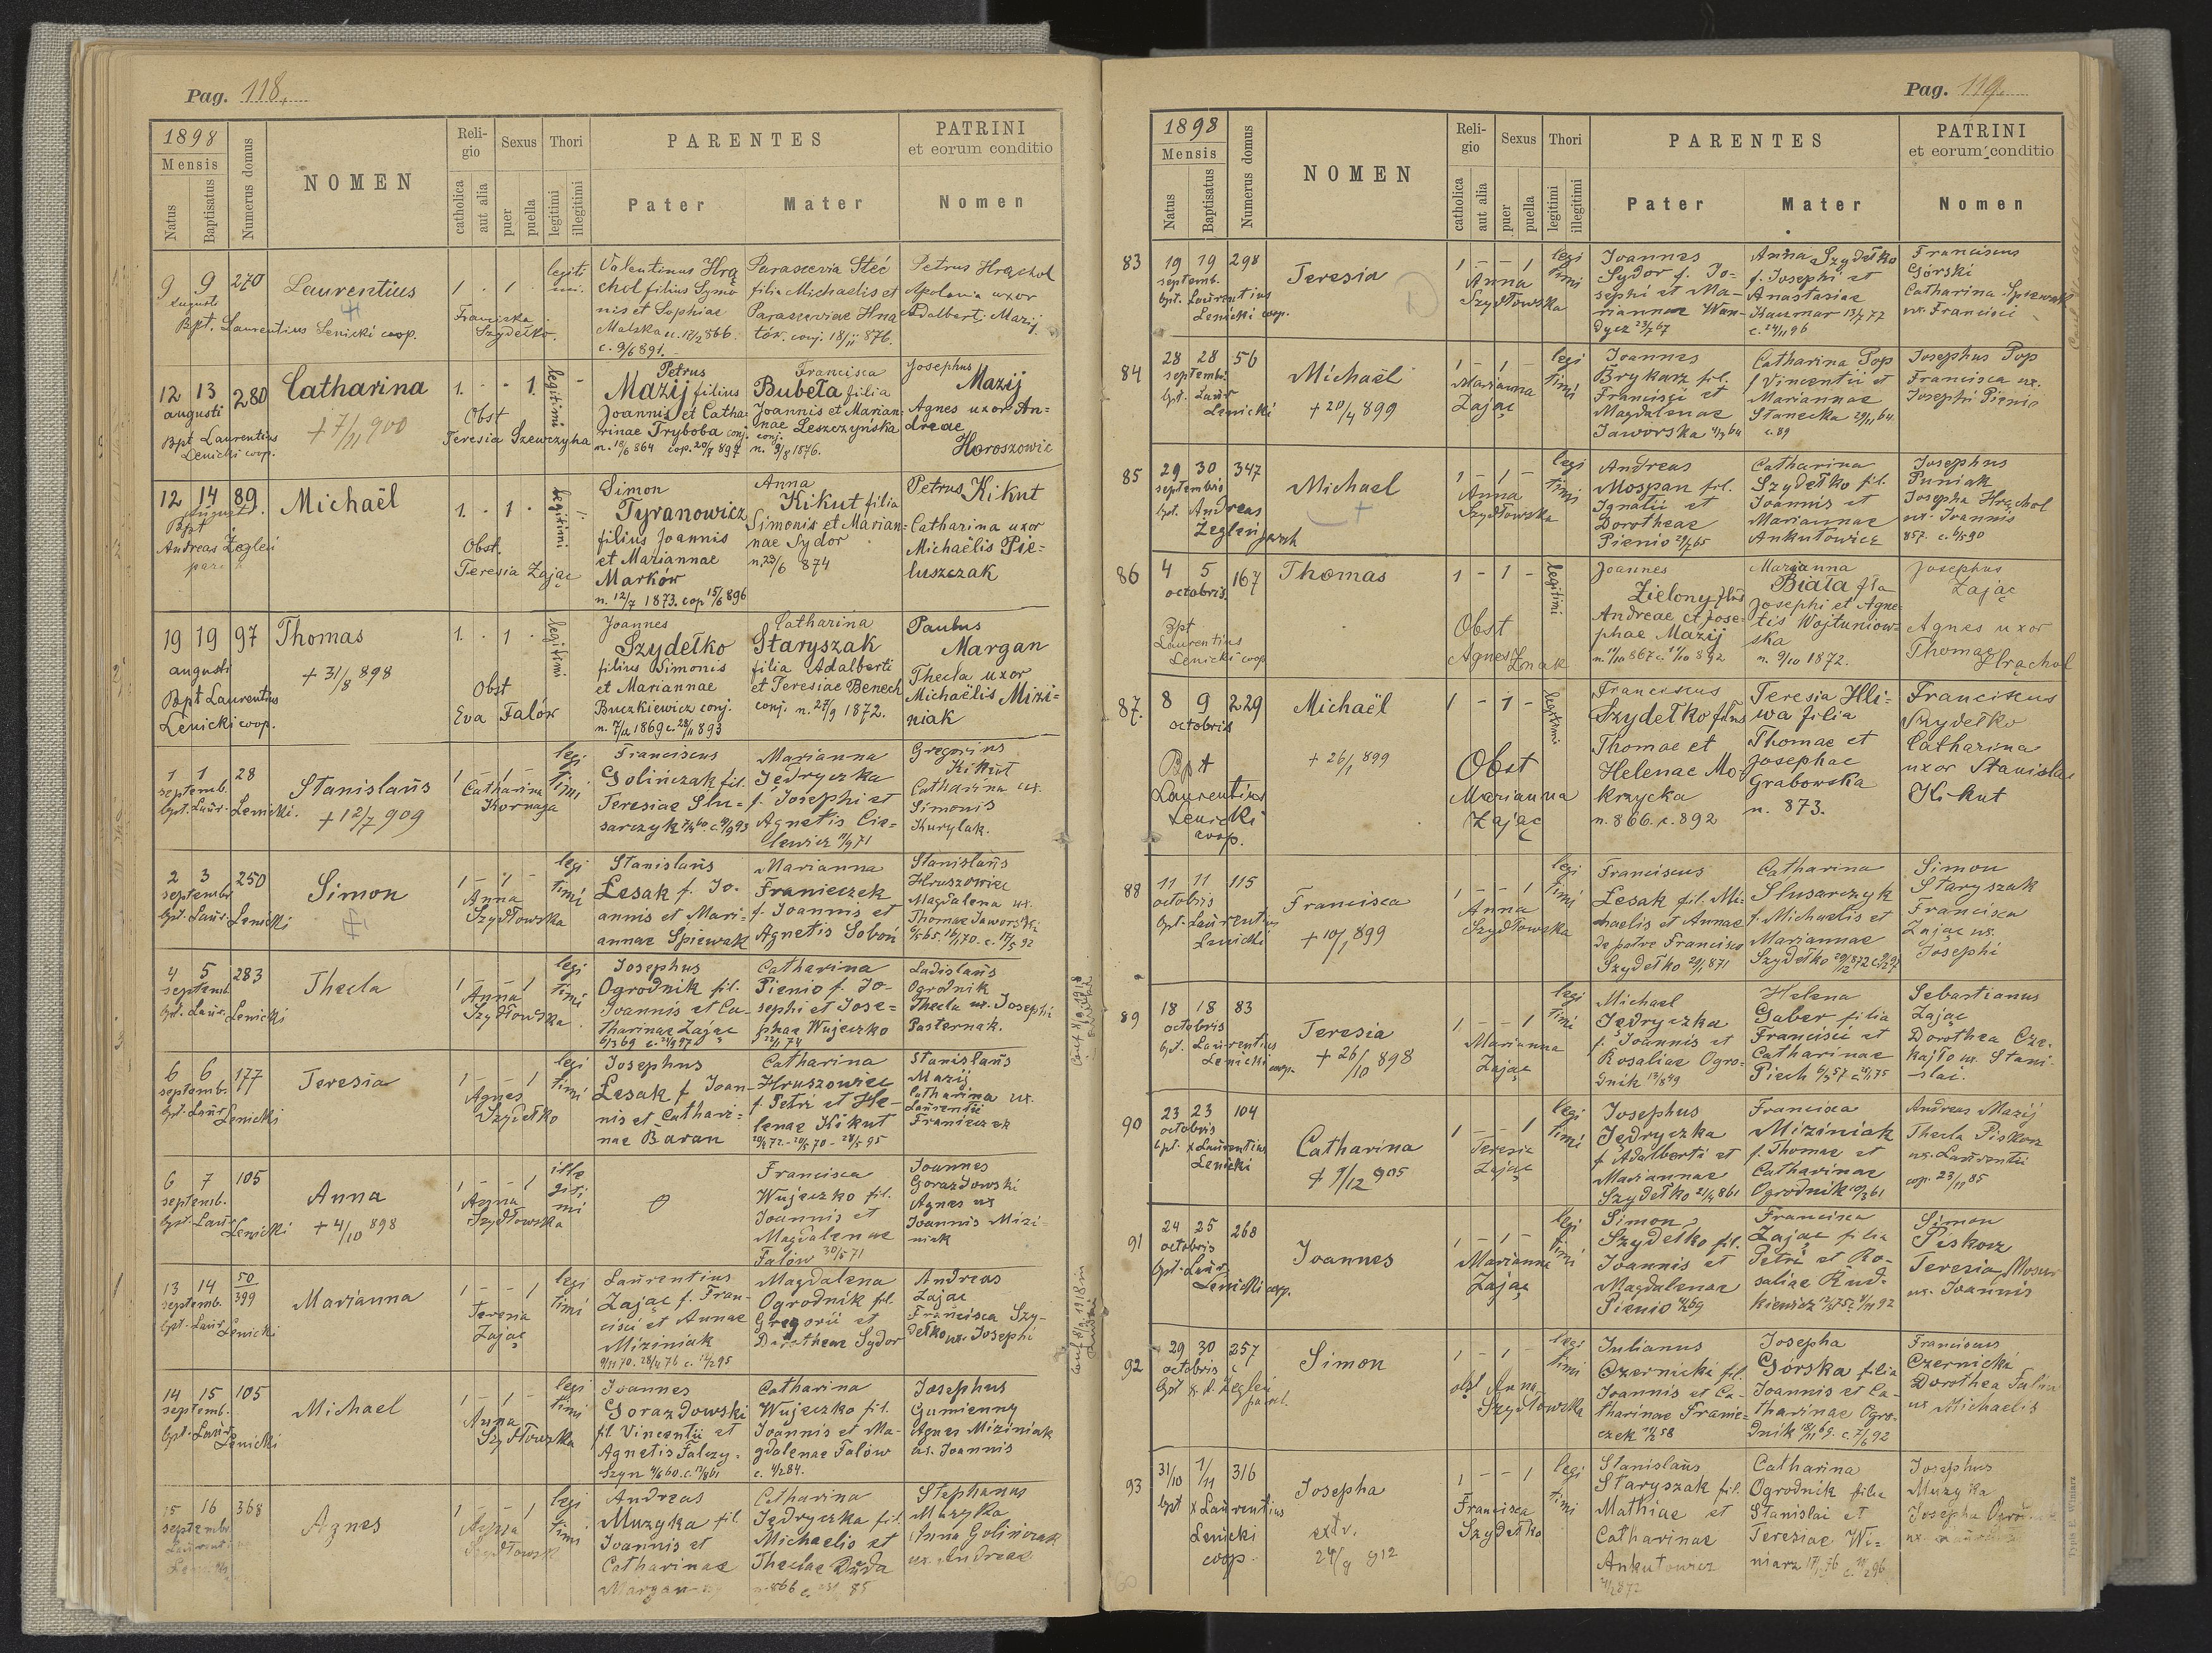 Pag. 118.
1898
Mensis
Natus
Baptisatus
Numerus domus
NOMEN
Reli-
gio
catholica
aut alia
Sexus
puer
puella
Thori
legitimi
illegitimi
PARENTES
Pater
Mater
PATRINI
et eorum conditio
Nomen
9 9 270
Augusti
Bpt. Laurentius Lenicki coop.
Laurentius
1 . 1 .
Franciska
Szydełko.
legiti
mi.
Valentinus Hrą
chol filius Symo
nis et Sophiae
Malska n. 12/2 866
c. 9/6 891.
Parascevia Steć
filia Michaelis et
Parasceviae Hna
tów. conj. 18/11 876.
Petrus Hrąchol
Apolonia uxor
Adalberti Mazij
12 13 280
augusti
Bpt Laurentius
Lenicki coop.
Catharina
+ 7/11 900
1. - - 1.
Obst
Teresia Szewczyha
legitimi
Petrus
Mazij filius
Joannis et Catha-
rinae Tryboba conj.
n. 18/6 864 cop. 20/8 897
Francisca
Bubeła filia
Joannis et Marian-
nae Leszczyńska
conj.
n. 9/8 1876.
Josephus
Mazij
Agnes uxor An-
dreae
Horoszowic
12 14 89
August.
Bpt
Andreas Żegleń
par.
Michaël
1. - 1 .
Obst.
Teresia Zając
legitimi
Simon
Tyranowicz
filius Joannis
et Mariannae
Marków
n. 12/7 1873. cop 15/6 896
Anna
Kikut filia
Simonis et Marian-
nae Sydor
n. 23/6 874
Petrus Kikut
Catharina uxor
Michaëlis Pie-
luszczak
19 19 97
augusti
Bpt Laurentius
Lenicki coop.
Thomas
+ 31/8 898
1. . 1 .
Obst
Eva Falów
legitimi
Joannes
Szydełko
filius Simonis
et Mariannae
Buczkiewicz conj.
n. 7/12 1869 c. 28/11 893
Catharina
Staryszak
filia Adalberti
et Teresiae Benech
conj. n. 27/9 1872.
Paulus
Margan
Thecla uxor
Michaëlis Mizi-
niak
1 1 28
septemb.
bpt. Laur. Lenicki.
Stanislaus
+ 12/7 909
1 - 1 -
Catharina
Kornaga
legi
timi
Franciscus
Golińczak fil.
Teresiae Slu-
sarczyk
Marianna
Jędryczka
f. Josephi et
Agnetis Cie-
lewicz 11/9 71
Gregorius
Kikut
Catharina ux.
Simonis
Kurylak.
2 3 250
septembr
bpt. Laur. Lenicki
Simon
1 - 1 -
Anna
Szydłowska
legi
timi
Stanislaus
Lesak f. Jo-
annis et Mari-
annae Spiewak
Marianna
Franieczek
f. Joannis et
Agnetis Soboń
Stanislaus
Hruszowiec
Magdalena ux.
Thomae Jaworski
6/5 65. 16/1 70. c. 17/5 92
4 5 283
septemb
bpt. Laur. Lenicki
Thecla
1 - - 1
Anna
Szydłowska
legi
timi
Josephus
Ogrodnik fil.
Joannis et Ca-
tharinae Zając
Catharina
Pienio f. Jo-
sephi et Jose-
phae Wujeczko
Ladislaus
Ogrodnik
Thecla ux. Josephi
Pasternak.
6 6 177
septemb.
bpt. Laur Lenicki
Teresia
1 - - 1
Agnes
Szydełko
legi
timi
Josephus
Lesak f. Joan-
nis et Cathari-
nae Baran
Catharina
Hruszowiec
f. Petri et He-
lenae Kikut
Stanislaus
Mazij
Catharina ux.
Laurentii
Franieczek
6 7 105
septemb.
bpt. Laur Lenicki
Anna
+ 4/10 898
1 - - 1
Anna
Szydłowska
ille
giti
mi
Francisca
Wujeczko fil.
Joannis et
Magdalenae
Falów 30/5 71
Joannes
Gorazdowski
Agnes ux
Joannis Mizi-
niak
13 14 50
399
septemb.
bpt. Laur Lenicki
Marianna
1 - - 1
Teresia
Zając
legi
timi
Laurentius
Zając f. Fran-
cisci et Annae
Miziniak
9/11 70. 28/4 76 c. 12/2 95
Magdalena
Ogrodnik fil.
Gregorii et
Dorotheae Sydor
Andreas
Zając
Francisca Szy-
dełko ux. Josephi
14 15 105
septemb.
bpt. Laur Lenicki
Michael
1 - 1 -
Anna
Szydłowska
legi
timi
Joannes
Gorazdowski
fil. Vincentii et
Agnetis Falczy-
szyn
Catharina
Wujeczko fil.
Joannis et Ma-
gdalenae Falów
c. 4/2 84.
Josephus
Gumienny
Agnes Miziniak
ux. Joannis
15 16 368
septembr
Agnes
1 - - 1
Anna
Szydłowsk
legi
timi
Andreas
Muzyka fil.
Joannis et
Catharinae
Margan
Catharina
Jędryczka fil.
Michaelis et
Theclae Duda
Stephanus
Muzyka
Anna Golińczak
ux. Andreae
Pag. 119.
1898
Mensis
Natus
Baptisatus
Numerus domus
NOMEN
Reli-
gio
catholica
aut alia
Sexus
puer
puella
Thori
legitimi
illegitimi
PARENTES
Pater
Mater
PATRINI
et eorum conditio
Nomen
83 19 19 298
septemb.
bpt. Laurentius
Lenicki coop.
Teresia
1 - - 1
Anna
Szydłowska
legi
timi
Joannes
Sydor f. Jo-
sephi et Ma-
riannae Wan-
dycz 23/7 67
Anna Szydełko
f. Josephi et
Anastasiae
Kaczmar 13/7 77
c. 24/11 96
Franciscus
Górski
Catharina Spiewak
ux. Francisci
84 28 28 56
septemb.
bpt. Laur
Lenicki
Michaël
+ 20/4 899
1 - 1 -
Marianna
Zając
legi
timi
Joannes
Brykarz fil.
Francisci et
Magdalenae
Jaworska 4/9 64
Catharina Pop
f. Vincentii et
Mariannae
Stanecka 29/11 64
c. 89
Josephus Pop
Francisca ux.
Josephi Pienio
85 29 30 347
septembris
bpt. Andreas
Żegleń paroch
Michael
1 - 1 -
Anna
Szydłowska
legi
timi
Andreas
Mospan fil.
Ignatii et
Dorotheae
Pienio 29/7 65
Catharina
Szydełko fil.
Joannis et
Mariannae
Ankutowicz
Josephus
Puniak
Josepha Hrąchol
ux. Joannis
86 4 5 167
octobris.
Bpt
Laurentius
Lenicki coop
Thomas
1 - 1 -
Obst
Agnes Żnak
legitimi
Joannes
Zielony filius
Andreae et Jose-
phae Mazij
Marianna
Biała fila
Josephi et Agne-
tis Wojtuniow-
ska
n. 9/10 1872.
Josephus
Zając
Agnes uxor
Thomae
Hrąchol
87. 8 9 229
octobris
Bpt
Laurentius
Lenicki
coop.
Michaël
+ 26/1 899
1 - 1 -
Obst
Marianna
Zając
legitimi
Franciscus
Szydełko filius
Thomae et
Helenae Mo-
krzycka
n. 866. c. 892
Teresia Hli-
wa filia
Thomae et
Josephae
Grabowska
n. 873.
Franciscus
Szydełko
Catharina
uxor Stanislai
Kikut
88 11 11 115
octobris
bpt. Laurentius
Lenicki
Francisca
+ 10/1 899
1 - - 1
Anna
Szydłowska
legi
timi
Franciscus
Lesak fil. Mi-
chaelis et Annae
de patre Francisco
Szydełko 29/1 871
Catharina
Slusarczyk
f. Michaelis et
Mariannae
Szydełko
Simon
Staryszak
Francisca
Zając ux.
Josephi
89 18 18 83
octobris
bpt. Laurentius
Lenicki coop.
Teresia
+ 26/10 898
1 - - 1
Marianna
Zając
legi
timi
Michael
Jędryczka
f. Joannis et
Rosaliae Ogro-
dnik 13/8 49
Helena
Gaber filia
Francisci et
Catharinae
Piech
Sebastianus
Zając
Dorothea Cze-
kajło ux. Stani-
slai.
90 23 23 104
octobris
bpt. x Laurentius
Lenicki
Catharina
+ 9/12 905
1 - - 1
Teresia
Zając
legi
timi
Josephus
Jędryczka
f. Adalberti et
Mariannae
Szydełko 21/4 861
Francisca
Miziniak
f. Thomae et
Catharinae
Ogrodnik 10/3 61
Andreas Mazij
Thecla Piskorz
ux. Laurentii
cop. 23/11 85
91 24 25 268
octobris
bpt. Laur
Lenicki coop.
Joannes
1 - 1 -
Marianna
Zając
legi
timi
Simon
Szydełko fil.
Joannis et
Magdalenae
Pienio
Francisca
Zając filia
Petri et Ro-
saliae Rud-
kiewicz
Simon
Piskorz
Teresia Mosur
ux. Joannis
92 29 30 257
octobris
bpt x. A. Żegleń
paroch.
Simon
1 - 1 -
obst Anna
Szydłowska
legi
timi
Julianus
Czernicki fil.
Joannis et Ca-
tharinae Franie-
czek
Josepha
Górska filia
Joannis et Ca-
tharinae Ogro-
dnik 18/11 69. c. 7/6 92
Franciscus
Czernicki
Dorothea Falów
ux Michaelis
93 31/10 1/11 316
bpt x Laurentius
Lenicki
coop.
Josepha
extr.
24/9 912
1 - - 1
Francisca
Szydełko
legi
timi
Stanislaus
Staryszak fil.
Mathiae et
Catharinae
Ankutowicz
Catharina
Ogrodnik filia
Stanislai et
Teresiae Wi-
niarz
Josephus
Muzyka
Josepha
ux.